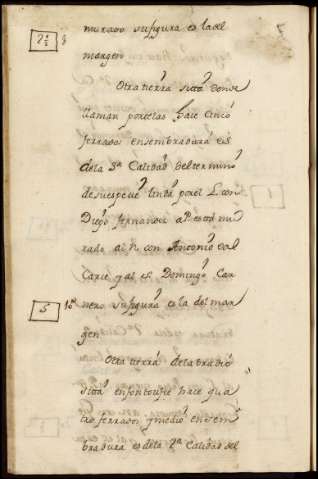 murado su figura es la del
margen
Otra tierra sitta donde
llaman porcelas hace cinco
ferrados en sembradura es
de la 3ª Calidad del termino
de su especie linda por el L. con
Diego fernandez
murado al N. con Antonio dal
Carie y al el Domingo Car
nero su figura es la del mar
5
gen
Otra tierra de labradio
sitta en fontoufe hace qua
tro ferrados y medio en sem
bradura es de la 2ª Calidad del